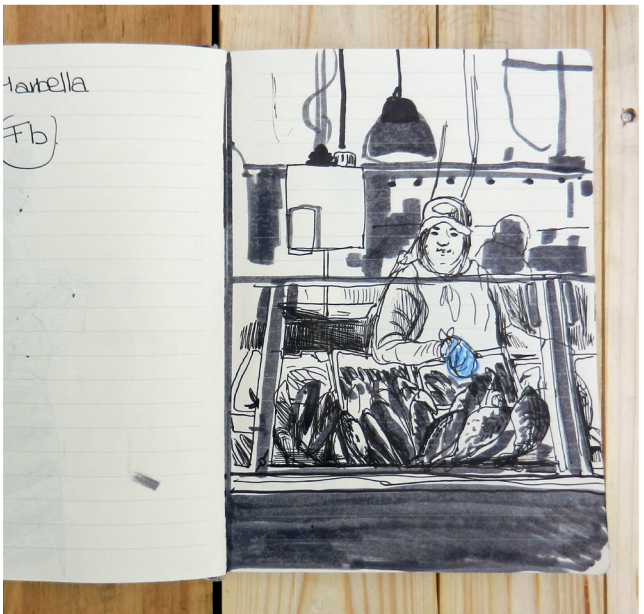 Marbella
Fb